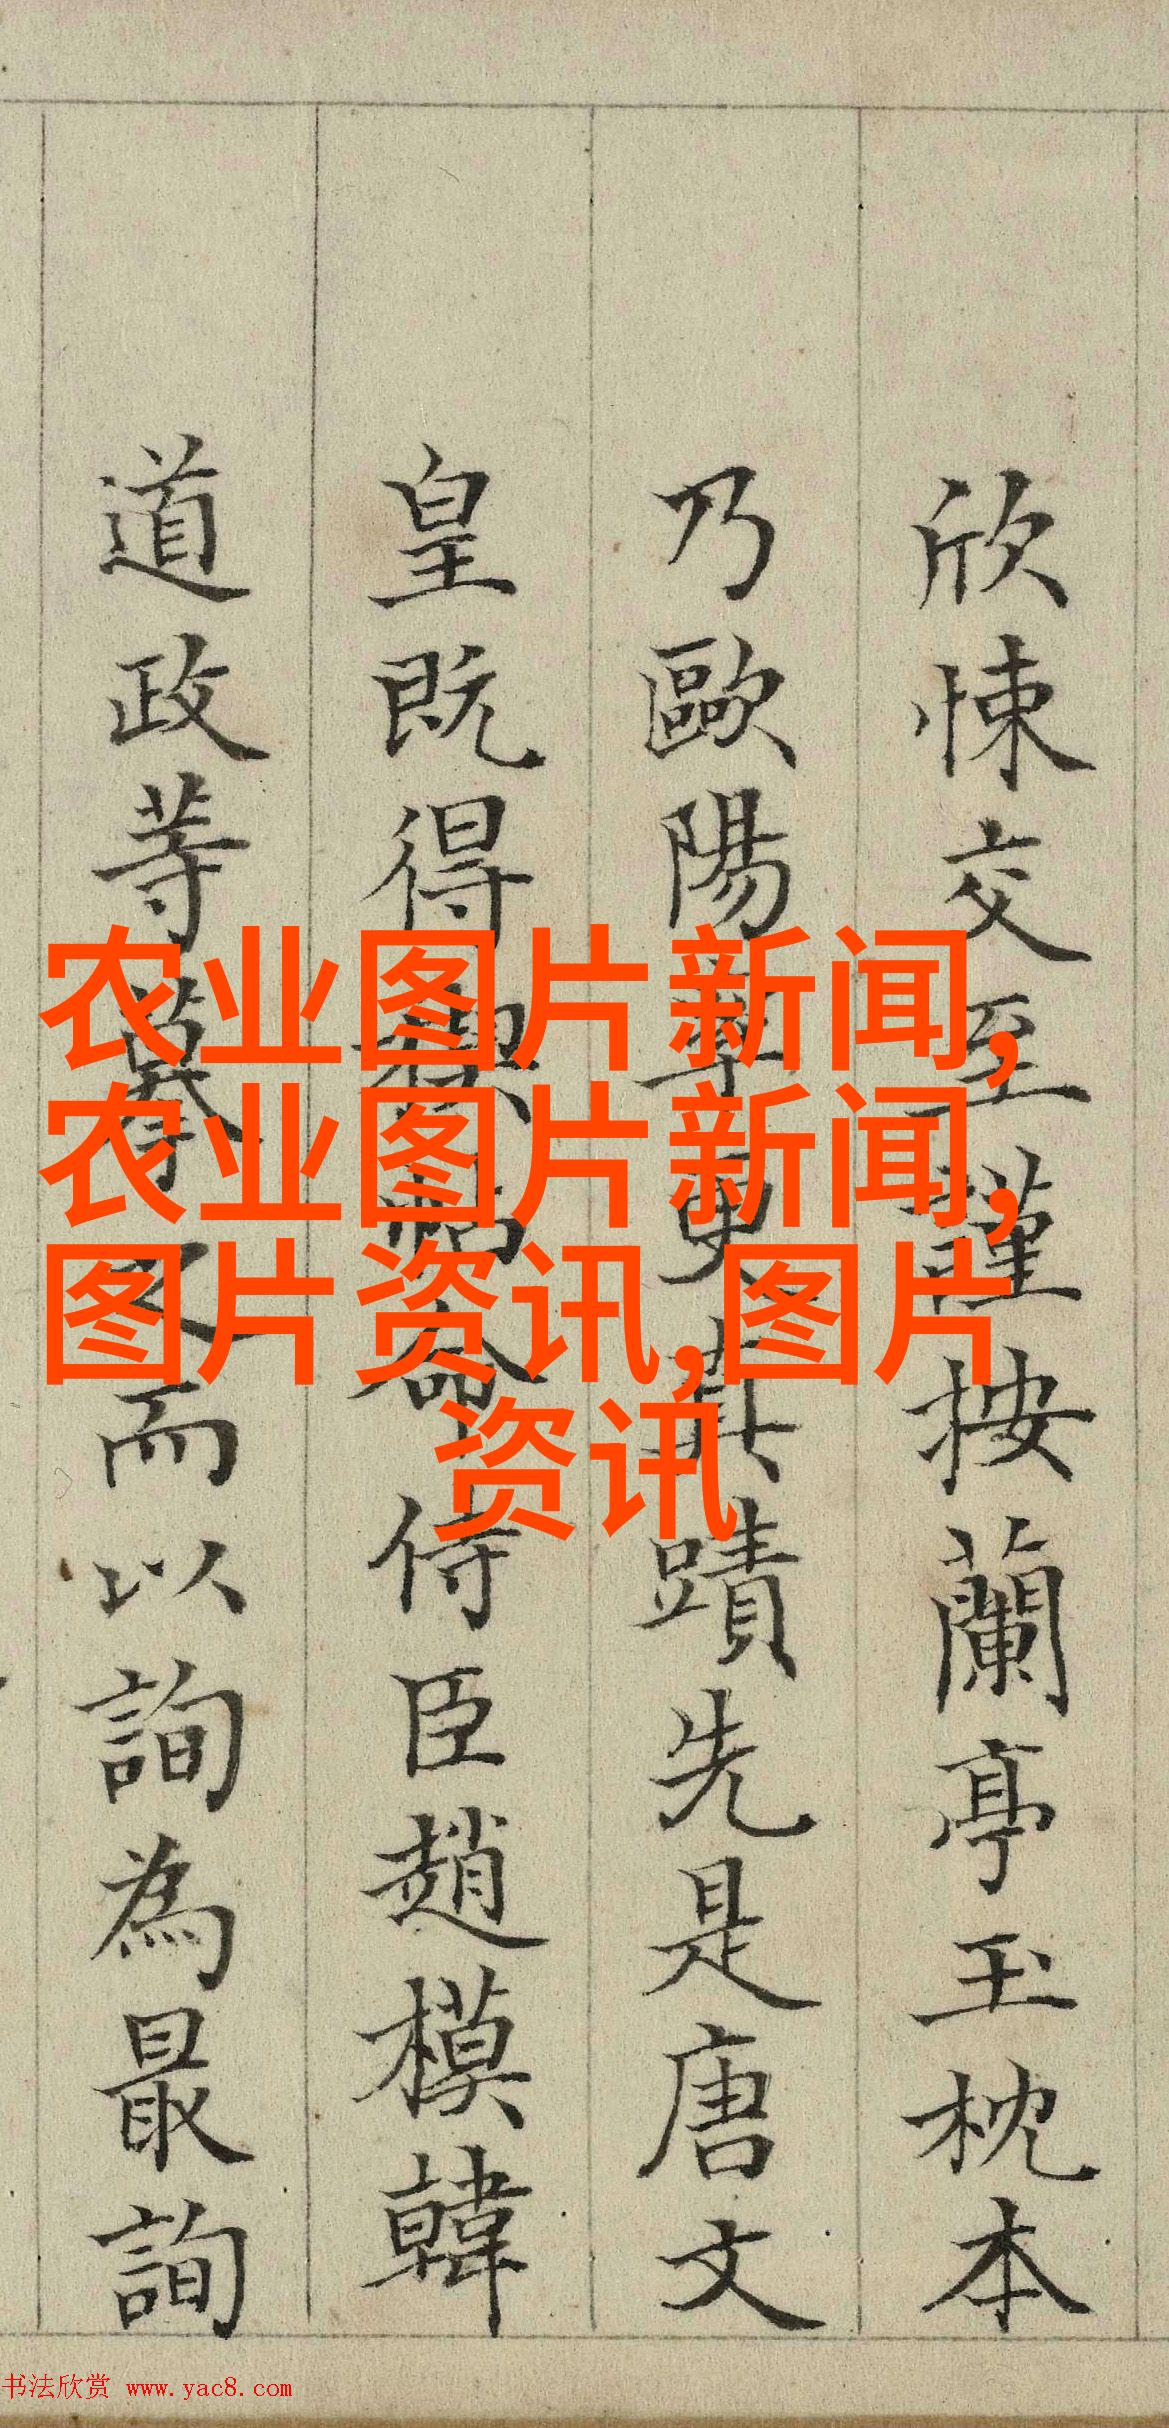 欣悚交至謹按蘭亭玉枕本
乃歐陽率更真蹟先是唐文
皇既得禊帖命侍臣趙模韓
道政等摹之而以詢為最詢
农业图片新闻,
农业图片新闻,
图片资讯,图片
资讯
书法欣赏 www.yac8.com